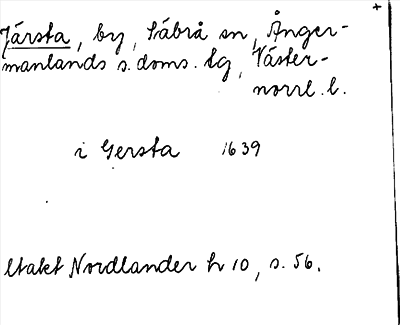 +
Järsta, by, Säbrå sn, Ånger-
manlands s. doms. lg, Väster-
norrl. l.
i Gersta 1639
Utakt Nordlander h 10, s. 56.